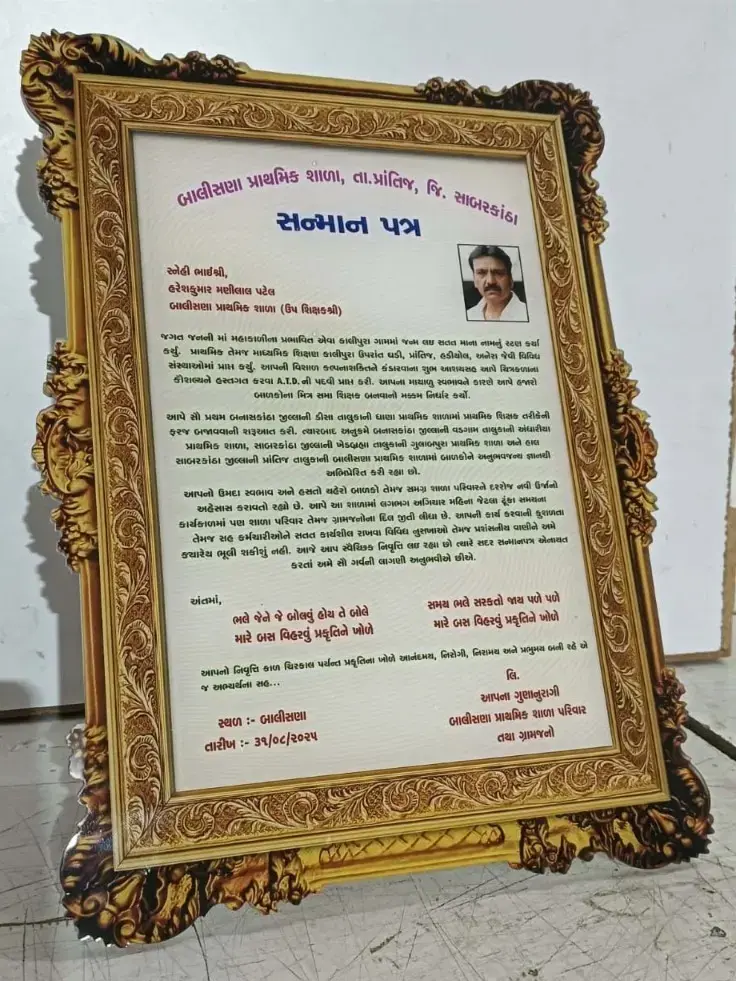 બાલીસણા પ્રાથમિક શાળા, તા.પ્રાંતિજ, જિ. સાબરકાંઠા
સન્માન પત્ર
સ્નેહી ભાઈશ્રી,
હરેશકુમાર મણીલાલ પટેલ
બાલીસણા પ્રાથમિક શાળા (ઉપ શિક્ષકશ્રી)
જગત જનની માં મહાકાળીના પ્રભાવિત એવા કાલીપુરા ગામમાં જન્મ લઇ સતત માના નામનું રટણ કર્યા
કર્યું. પ્રાથમિક તેમજ માધ્યમિક શિક્ષણ કાલીપુરા ઉપરાંત ઘડી, પ્રાંતિજ, હડીયોલ, અનેરા જેવી વિવિધ
સંસ્થાઓમાં પ્રાપ્ત કર્યું. આપની વિશાળ કલ્પનાશક્તિને કંડારવાના શુભ આશયસહ આપે ચિત્રકળાના
કૌશલ્યને હસ્તગત કરવા A.T.D. ની પદવી પ્રાપ્ત કરી. આપના માયાળુ સ્વભાવને કારણે આપે હજારો
બાળકોના મિત્ર સમા શિક્ષક બનવાનો મક્કમ નિર્ધાર કર્યો.
આપે સૌ પ્રથમ બનાસકાંઠા જીલ્લાની ડીસા તાલુકાની ઘાણા પ્રાથમિક શાળામાં પ્રાથમિક શિક્ષક તરીકેની
ફરજ બજાવવાની શરૂઆત કરી. ત્યારબાદ અનુક્રમે બનાસકાંઠા જીલ્લાની વડગામ તાલુકાની અંધારીયા
પ્રાથમિક શાળા, સાબરકાંઠા જીલ્લાની ખેડબ્રહ્મા તાલુકાની ગુલાબપુરા પ્રાથમિક શાળા અને હાલ
સાબરકાંઠા જીલ્લાની પ્રાંતિજ તાલુકાની બાલીસણા પ્રાથમિક શાળામાં બાળકોને અનુભવજન્ય જ્ઞાનથી
અભિપ્રેરિત કરી રહ્યા છો.
આપનો ઉમદા સ્વભાવ અને હસતો ચહેરો બાળકો તેમજ સમગ્ર શાળા પરિવારને દરરોજ નવી ઉર્જાનો
અહેસાસ કરાવતો રહ્યો છે. આપે આ શાળામાં લગભગ અગિયાર મહિના જેટલા ટૂંકા સમયના
કાર્યકાળમાં પણ શાળા પરિવાર તેમજ ગ્રામજનોના દિલ જીતી લીધા છે. આપની કાર્ય કરવાની કુશળતા
તેમજ સહ કર્મચારીઓને સતત કાર્યશીલ રાખવા વિવિધ નુસખાઓ તેમજ પ્રશંસનીય વાણીને અમે
ક્યારેય ભૂલી શકીશું નહી. આજે આપ સ્વૈચ્છિક નિવૃત્તિ લઇ રહ્યા છો ત્યારે સદર સન્માનપત્ર એનાયત
કરતાં અમે સૌ ગર્વની લાગણી અનુભવીએ છીએ.
અંતમાં,
ભલે જેને જે બોલવું હોય તે બોલે
મારે બસ વિહરવું પ્રકૃતિને ખોળે
સમય ભલે સરકતો જાય પળે પળે
મારે બસ વિહરવું પ્રકૃતિને ખોળે
આપનો નિવૃત્તિ કાળ ચિરકાલ પર્યન્ત પ્રકૃતિના ખોળે આનંદમય, નિરોગી, નિરામય અને પ્રભુમય બની રહે એ
જ અભ્યર્થના સહ...
લિ.
આપના ગુણાનુરાગી
બાલીસણા પ્રાથમિક શાળા પરિવાર
તથા ગ્રામજનો
સ્થળ :- બાલીસણા
તારીખ :- ૩૧/૦૮/૨૦૨૫